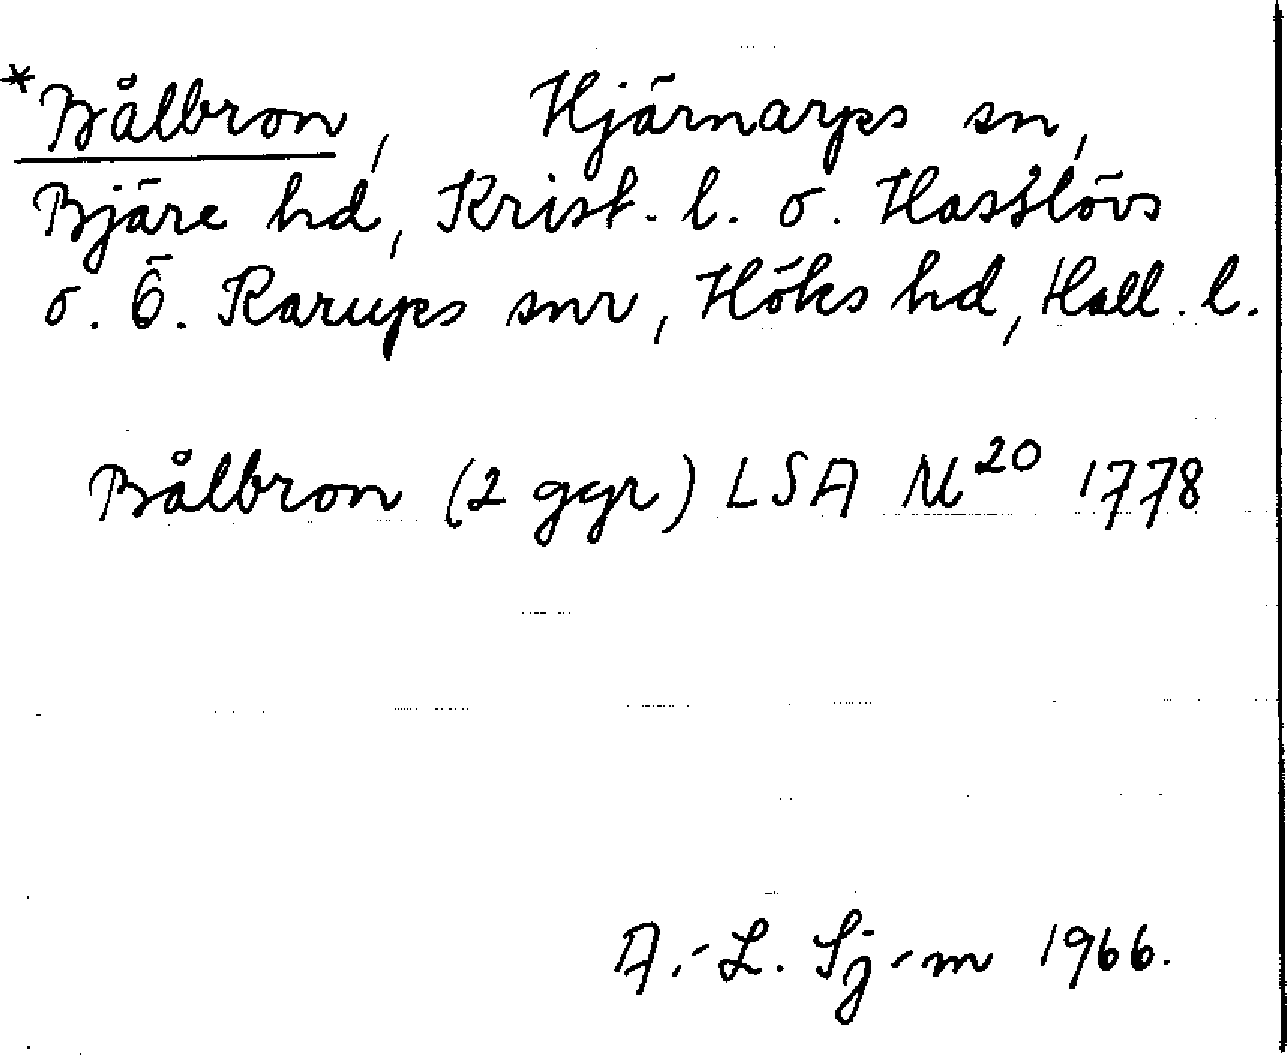 *Bålbron, Hjärnarps sn,
Bjäre hd, Krist. l. o. Hasslövs
o. Ö. Karups snr, Höks hd, Hall. l.
Bålbron (2 ggr) LSA M²⁰ 1778
A.-L. Sj-m 1966.